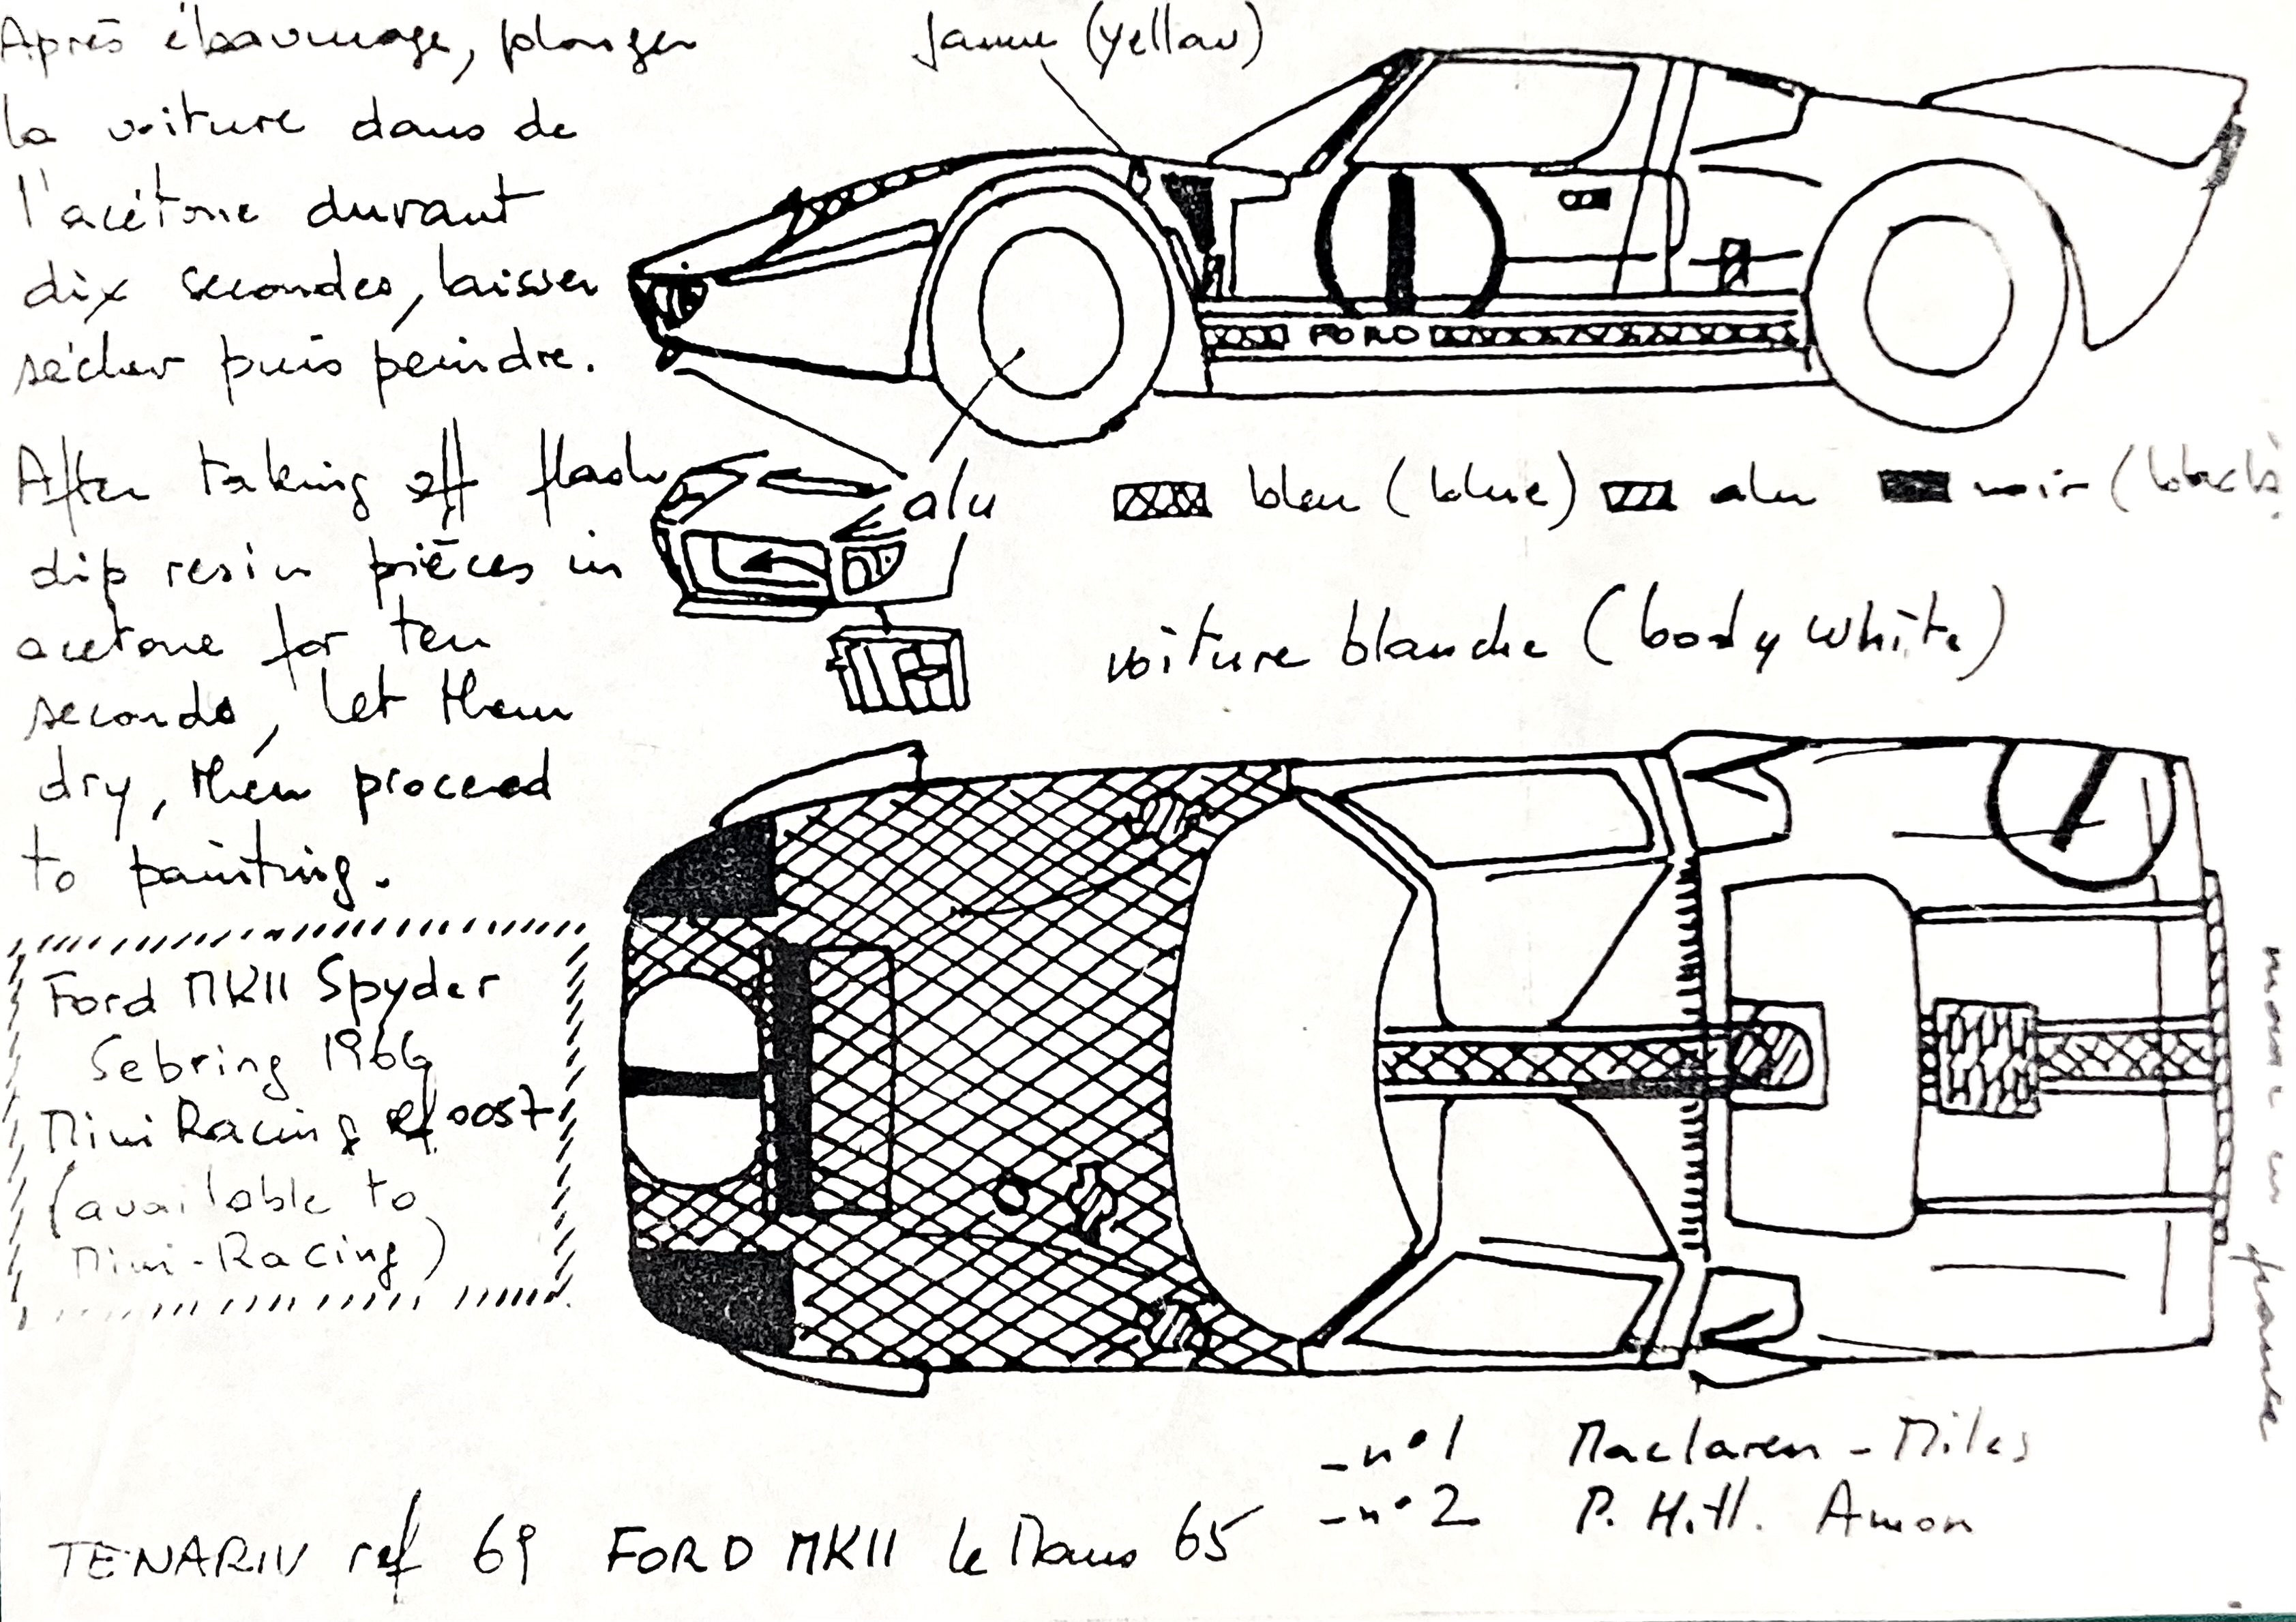 Après ébavurage, plonger
la voiture dans de
l'acétone durant
dix secondes, laisser
sécher puis peindre.
After taking off flash
dip resin pièces in
acetone for ten
seconds, let them
dry, then proceed
to painting.
Ford MKII Spyder
Sebring 1966
Mini Racing ref 0057
(available to
Mini-Racing)
jaune (yellow)
1
FORD
alu
bleu (blue)
alu
noir (black)
voiture blanche (body white)
1
made in france
-n°1 Maclaren - Miles
-n°2 P. Hill. Amon
TENARIV ref 69 FORD MKII le Mans 65